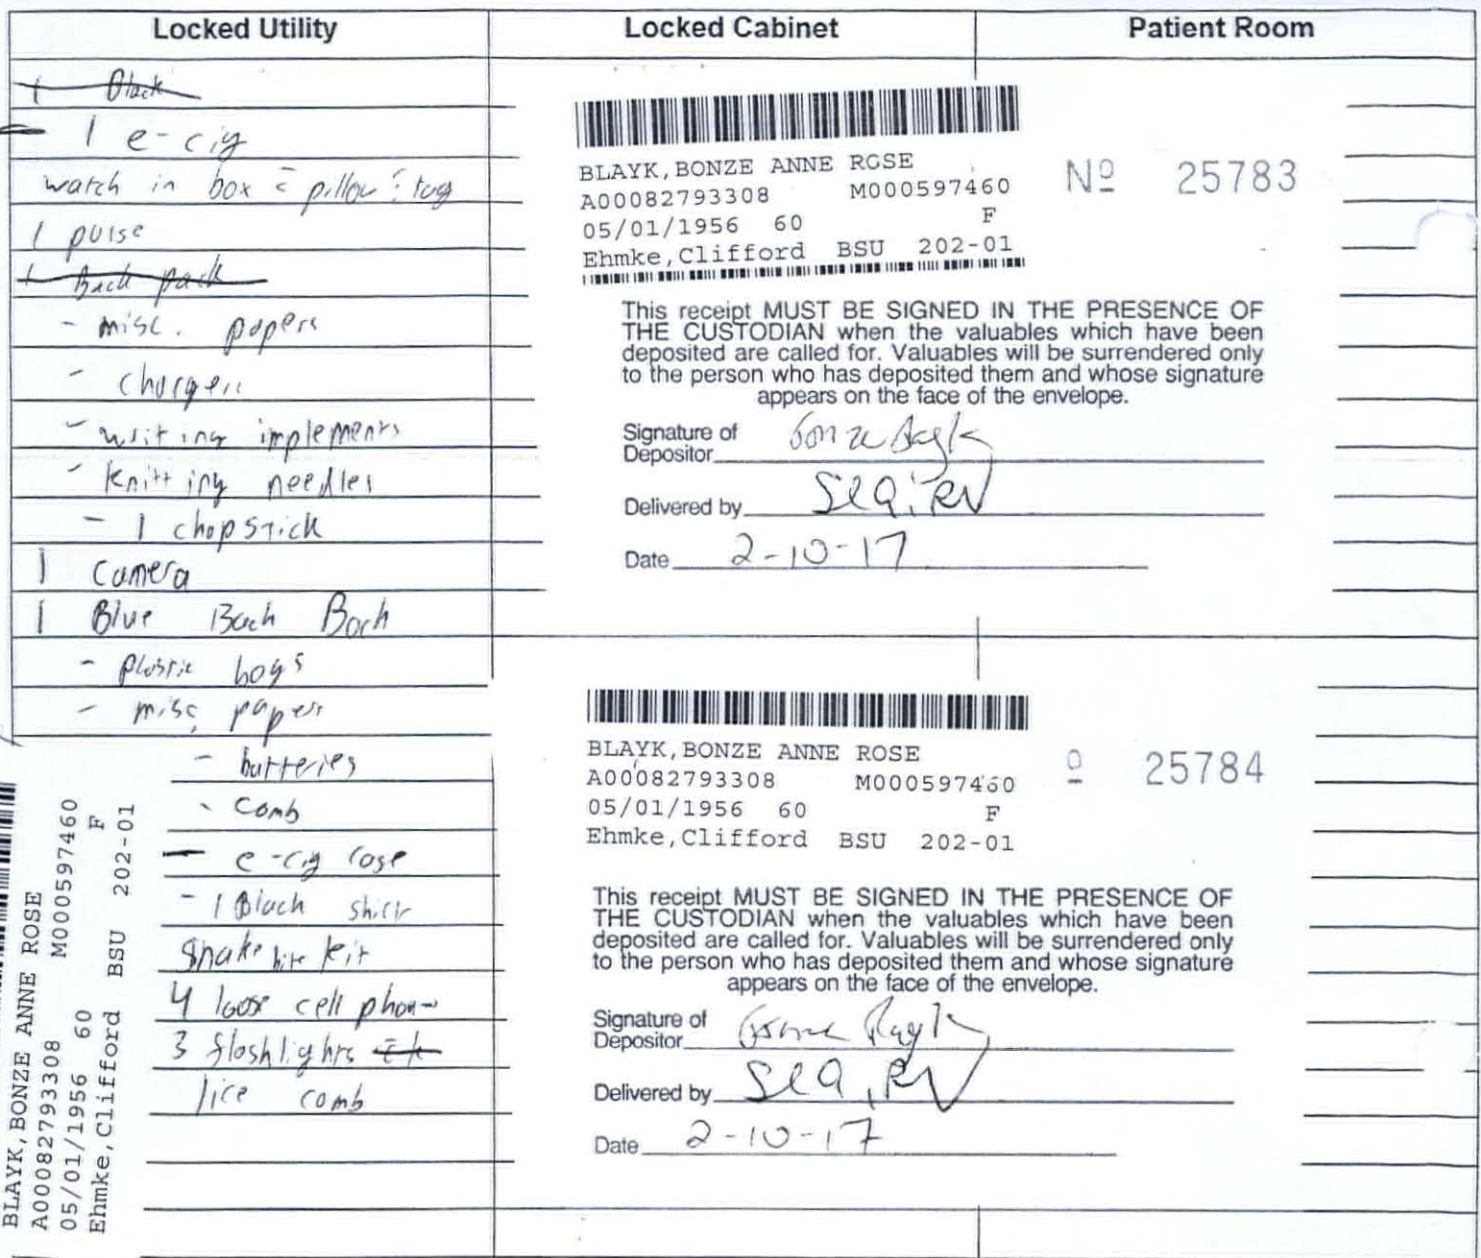 Locked Utility
Locked Cabinet
Patient Room
1 Black
1 e-cig
watch in box c̄ pillow & tag
1 purse
1 Back pack
- misc. papers
- chargers
- writing implements
- knitting needles
- 1 chopstick
1 Camera
1 Blue Back
- plastic bags
- misc. papers
- batteries
- comb
- e-cig case
- 1 Black
Snake bite kit
4 loose cell
3 flashlights
lice comb
BLAYK,BONZE ANNE ROSE
A00082793308 M000597460
05/01/1956 60 F
Ehmke,Clifford BSU 202-01
Nº 25783
This receipt MUST BE SIGNED IN THE PRESENCE OF
THE CUSTODIAN when the valuables which have been
deposited are called for. Valuables will be surrendered only
to the person who has deposited them and whose signature
appears on the face of the envelope.
Signature of
Depositor
Delivered by RN
Date 2-10-17
BLAYK,BONZE ANNE ROSE
A00082793308 M000597460
05/01/1956 60 F
Ehmke,Clifford BSU 202-01
º 25784
This receipt MUST BE SIGNED IN THE PRESENCE OF
THE CUSTODIAN when the valuables which have been
deposited are called for. Valuables will be surrendered only
to the person who has deposited them and whose signature
appears on the face of the envelope.
Signature of
Depositor
Delivered by RN
Date 2-10-17
BLAYK,BONZE ANNE ROSE
A00082793308 M000597460
05/01/1956 60 F
Ehmke,Clifford BSU 202-01